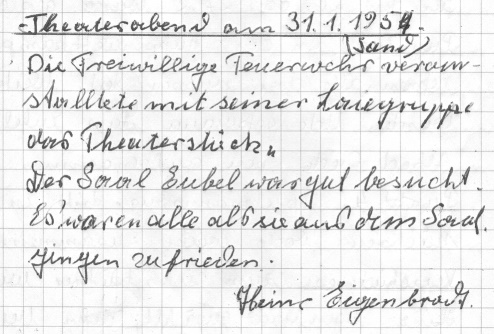 Theaterabend am 31.1.1954.
(Sand)
Die Freiwillige Feuerwehr veran-
stalltete mit seiner Laiegruppe
das Theaterstück „
Der Saal Eubel war gut besucht.
Es waren alle als sie aus dem Saal.
gingen zufrieden.
Heinr. Eigenbrodt.